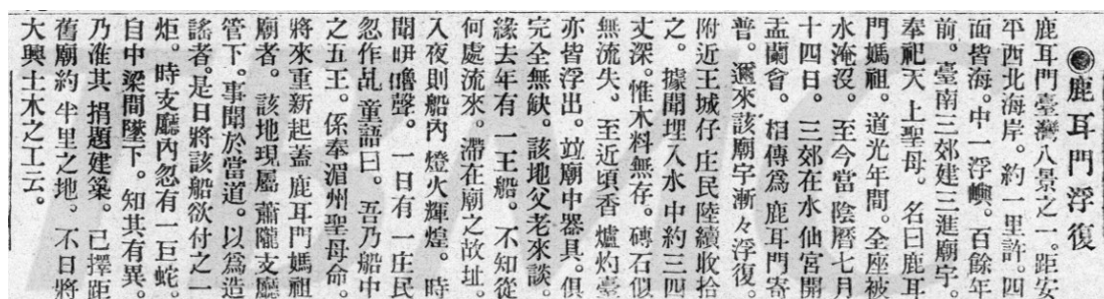 ◉鹿耳門浮復
鹿耳門臺灣八景之一。距安
平西北海岸。約一里許。四
面皆海。中一浮嶼。百餘年
前。臺南三郊建三進廟宇。
奉祀天上聖母。名曰鹿耳
門媽祖。道光年間。全座被
水淹沒。至今當陰曆七月
十四日。三郊在水仙宮開
盂蘭會。相傳爲鹿耳門寄
普。邇來該廟宇漸々浮復。
附近王城仔庄民陸續收拾
之。據聞埋入水中約三四
丈深。惟木料無存。磚石似
無流失。至近頃香爐灼臺
亦皆浮出。竝廟中器具。俱
完全無缺。該地父老來談。
緣去年有一王船。不知從
何處流來。滯在廟之故址。
入夜則船內燈火輝煌。時
聞咿嚕聲。一日有一庄民
忽作乩童語曰。吾乃船中
之五王。係奉湄州聖母命。
將來重新起蓋鹿耳門媽祖
廟者。該地現屬蕭隴支廳
管下。事聞於當道。以爲造
謠者。是日將該船欲付之一
炬。時支廳內忽有一巨蛇。
自中梁間墜下。知其有異。
乃准其捐題建築。已擇距
舊廟約半里之地。不日將
大興土木之工云。